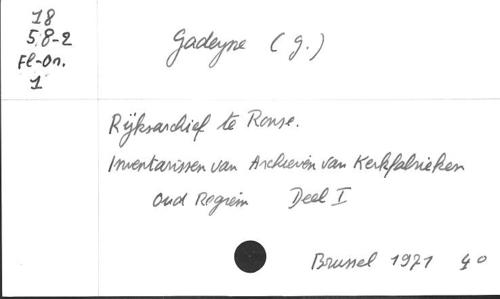 18
58-2
Fl-On.
1
Gadeyne (G.)
Rijksarchief te Ronse.
Inventarissen van Archieven van Kerkfabrieken
Oud Regiem Deel I
Brussel 1971 4°